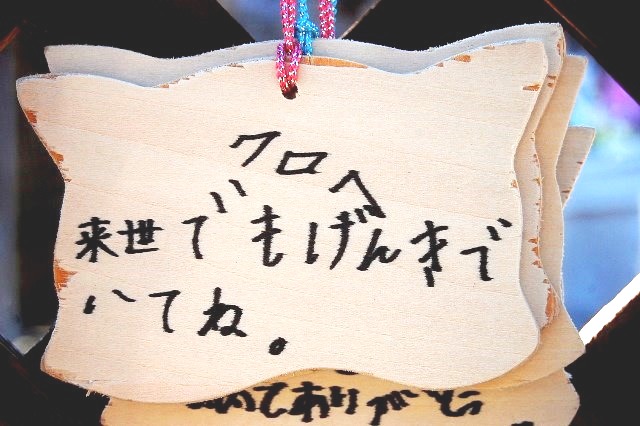 クロへ
来世でもげんきで
いてね。
てありがとう